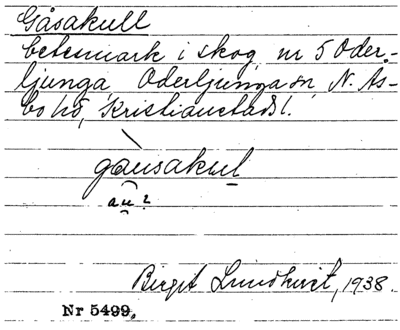 Gåsakull
betesmark i skog, nr 5 Oder-
ljunga, Oderljunga sn, N. Ås-
bo hd, Kristianstads l.
gausakul
au?
Birgit Lundkvist, 1938.
Nr 5499.